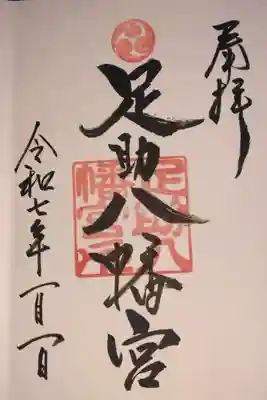 奉拝
足助八幡宮
足助八幡宮
令和七年一月一日